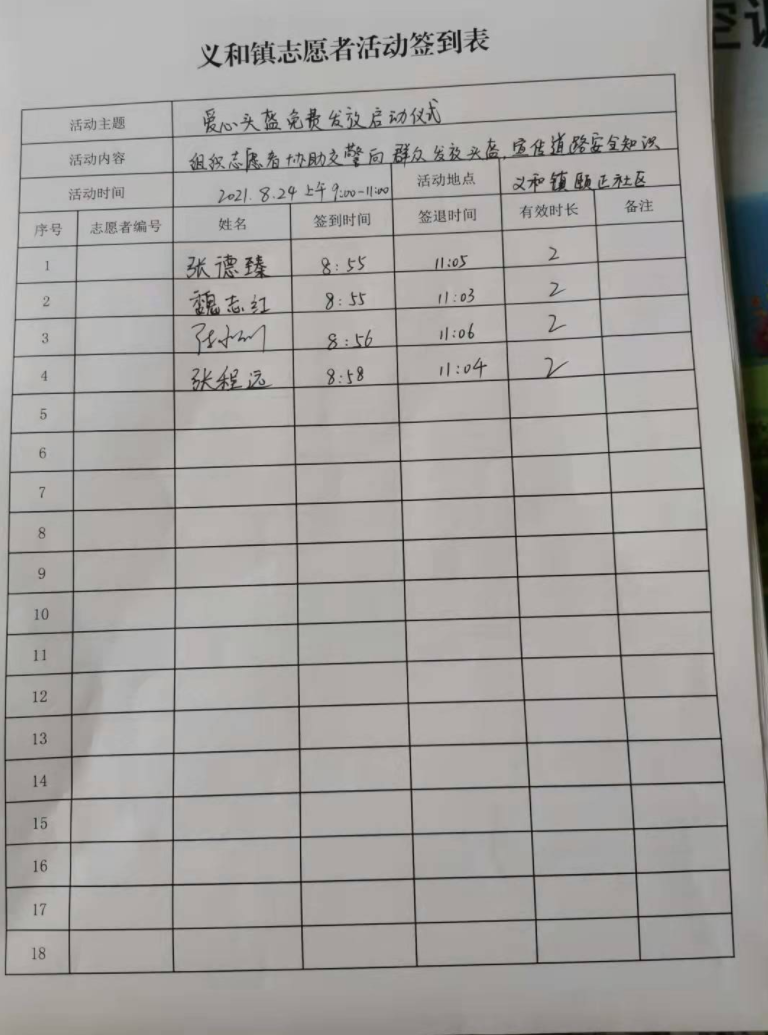 义和镇志愿者活动签到表
活动主题 爱心头盔免费发放启动仪式
活动内容 组织志愿者协助交警向群众发放头盔,宣传道路安全知识
活动时间 2021.8.24上午9:00-11:00 活动地点 义和镇颐正社区
序号 志愿者编号 姓名 签到时间 签退时间 有效时长 备注
1 张德臻 8:55 11:05 2
2 魏志红 8:55 11:03 2
3 8:56 11:06 2
4 张程远 8:58 11:04 2
5
6
7
8
9
10
11
12
13
14
15
16
17
18